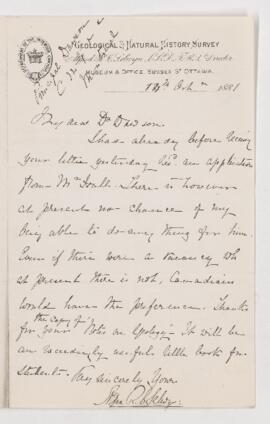 Principal Dawson
GEOLOGICAL & NATURAL HISTORY SURVEY
Alfred R. C. Selwyn, LL.D. F.R.S. Director
MUSEUM & OFFICE, SUSSEX ST OTTAWA.
12th Octr 1881
My dear Dr Dawson.
I had already before receiving
your letter yesterday recd. an application
from Mr . There is however
at present no chance of my
being able to do any thing for him.
Even if there were a vacancy wh
at present there is not, Canadians
would have the preference. Thanks
for the copy of your Notes on Geology. It will be
an exceedingly useful little book for
Students.
Very sincerely Yours
Alfred R C Selwyn